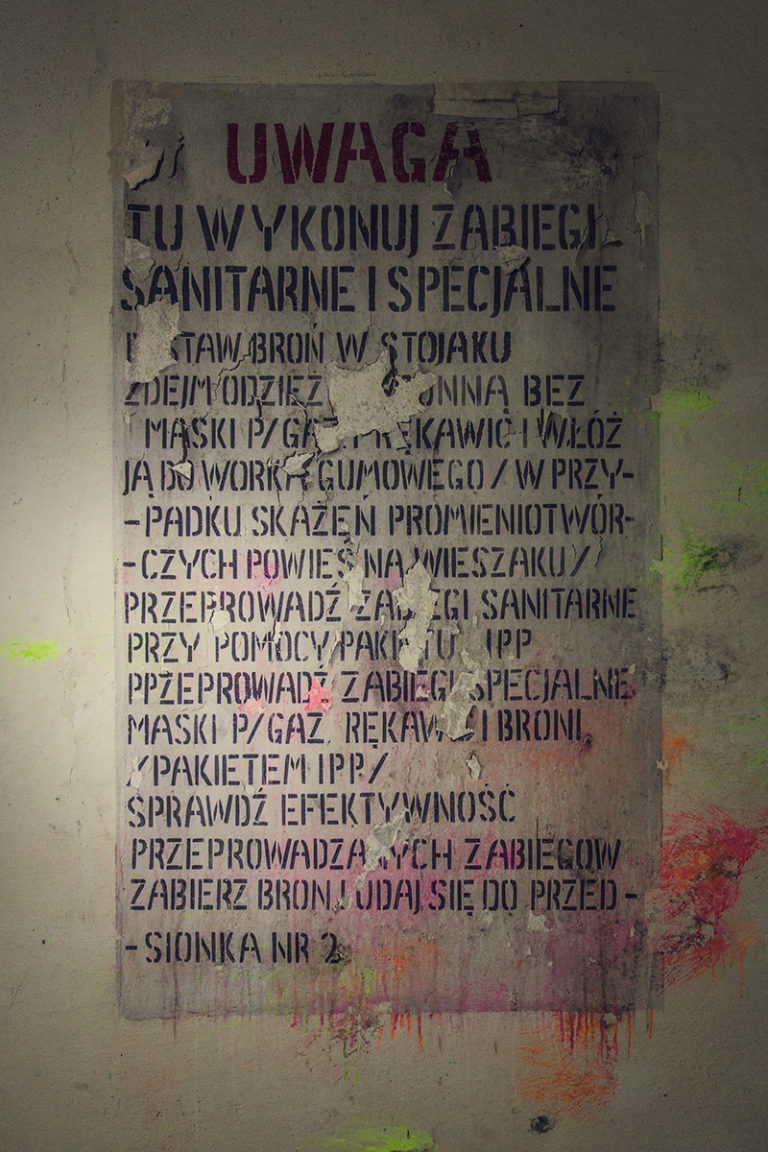 UWAGA
TU WYKONUJ ZABIEGI
SANITARNE I SPECJALNE
BROŃ W STOJAKU
ZDEJM ODZIEŻ BEZ
MASKI P/GAZ I RĘKAWIC I WŁÓŻ
JĄ DO WORKA GUMOWEGO / W PRZY-
-PADKU SKAŻEŃ PROMIENIOTWÓR-
-CZYCH POWIEŚ NA WIESZAKU/
PRZEPROWADŹ ZABIEGI SANITARNE
PRZY POMOCY PAKIETU IPP
PRZEPROWADŹ ZABIEGI SPECJALNE
MASKI P/GAZ, RĘKAWIC I BRONI,
/PAKIETEM IPP/
SPRAWDŹ EFEKTYWNOŚĆ
PRZEPROWADZANYCH ZABIEGÓW
ZABIERZ BROŃ I UDAJ SIĘ DO PRZED-
-SIONKA NR 2